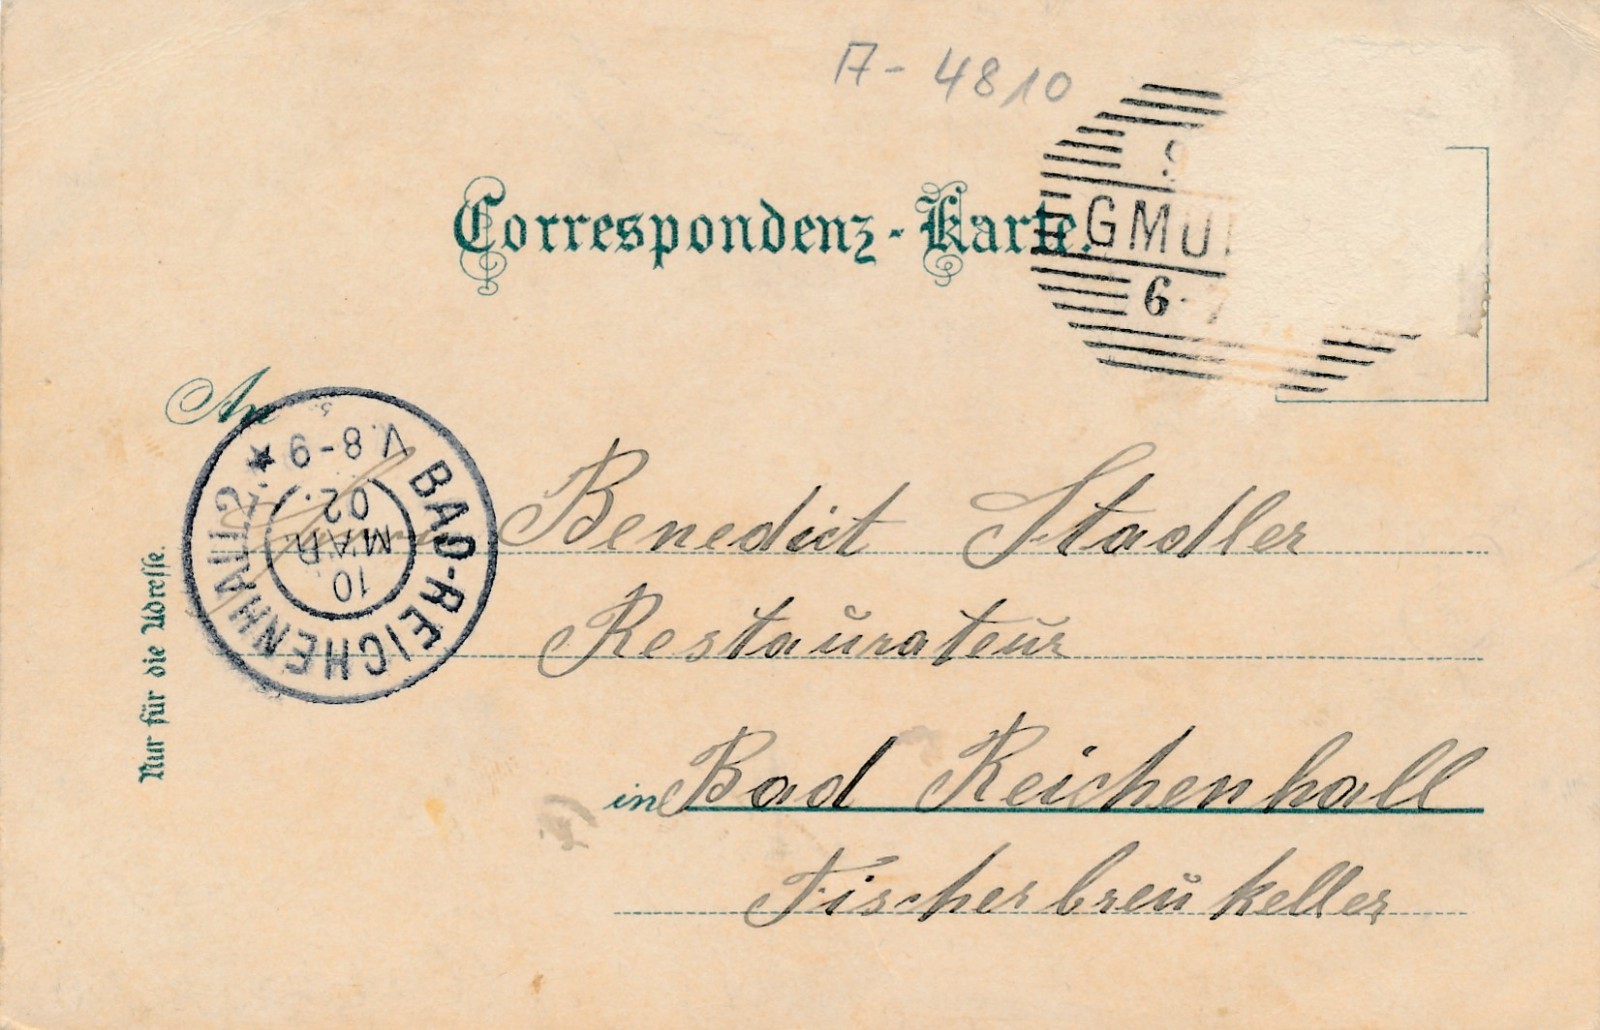 A-4810
Correspondenz-Karte.
9
GMU
6
An
BAD-REICHENHALL 2.
V. 8-9
10
MAR.
02.
Benedict Stadler
Restaŭrateŭr
in Bad Reichenhall
Fischerbreŭkeller
Nur für die Adresse.